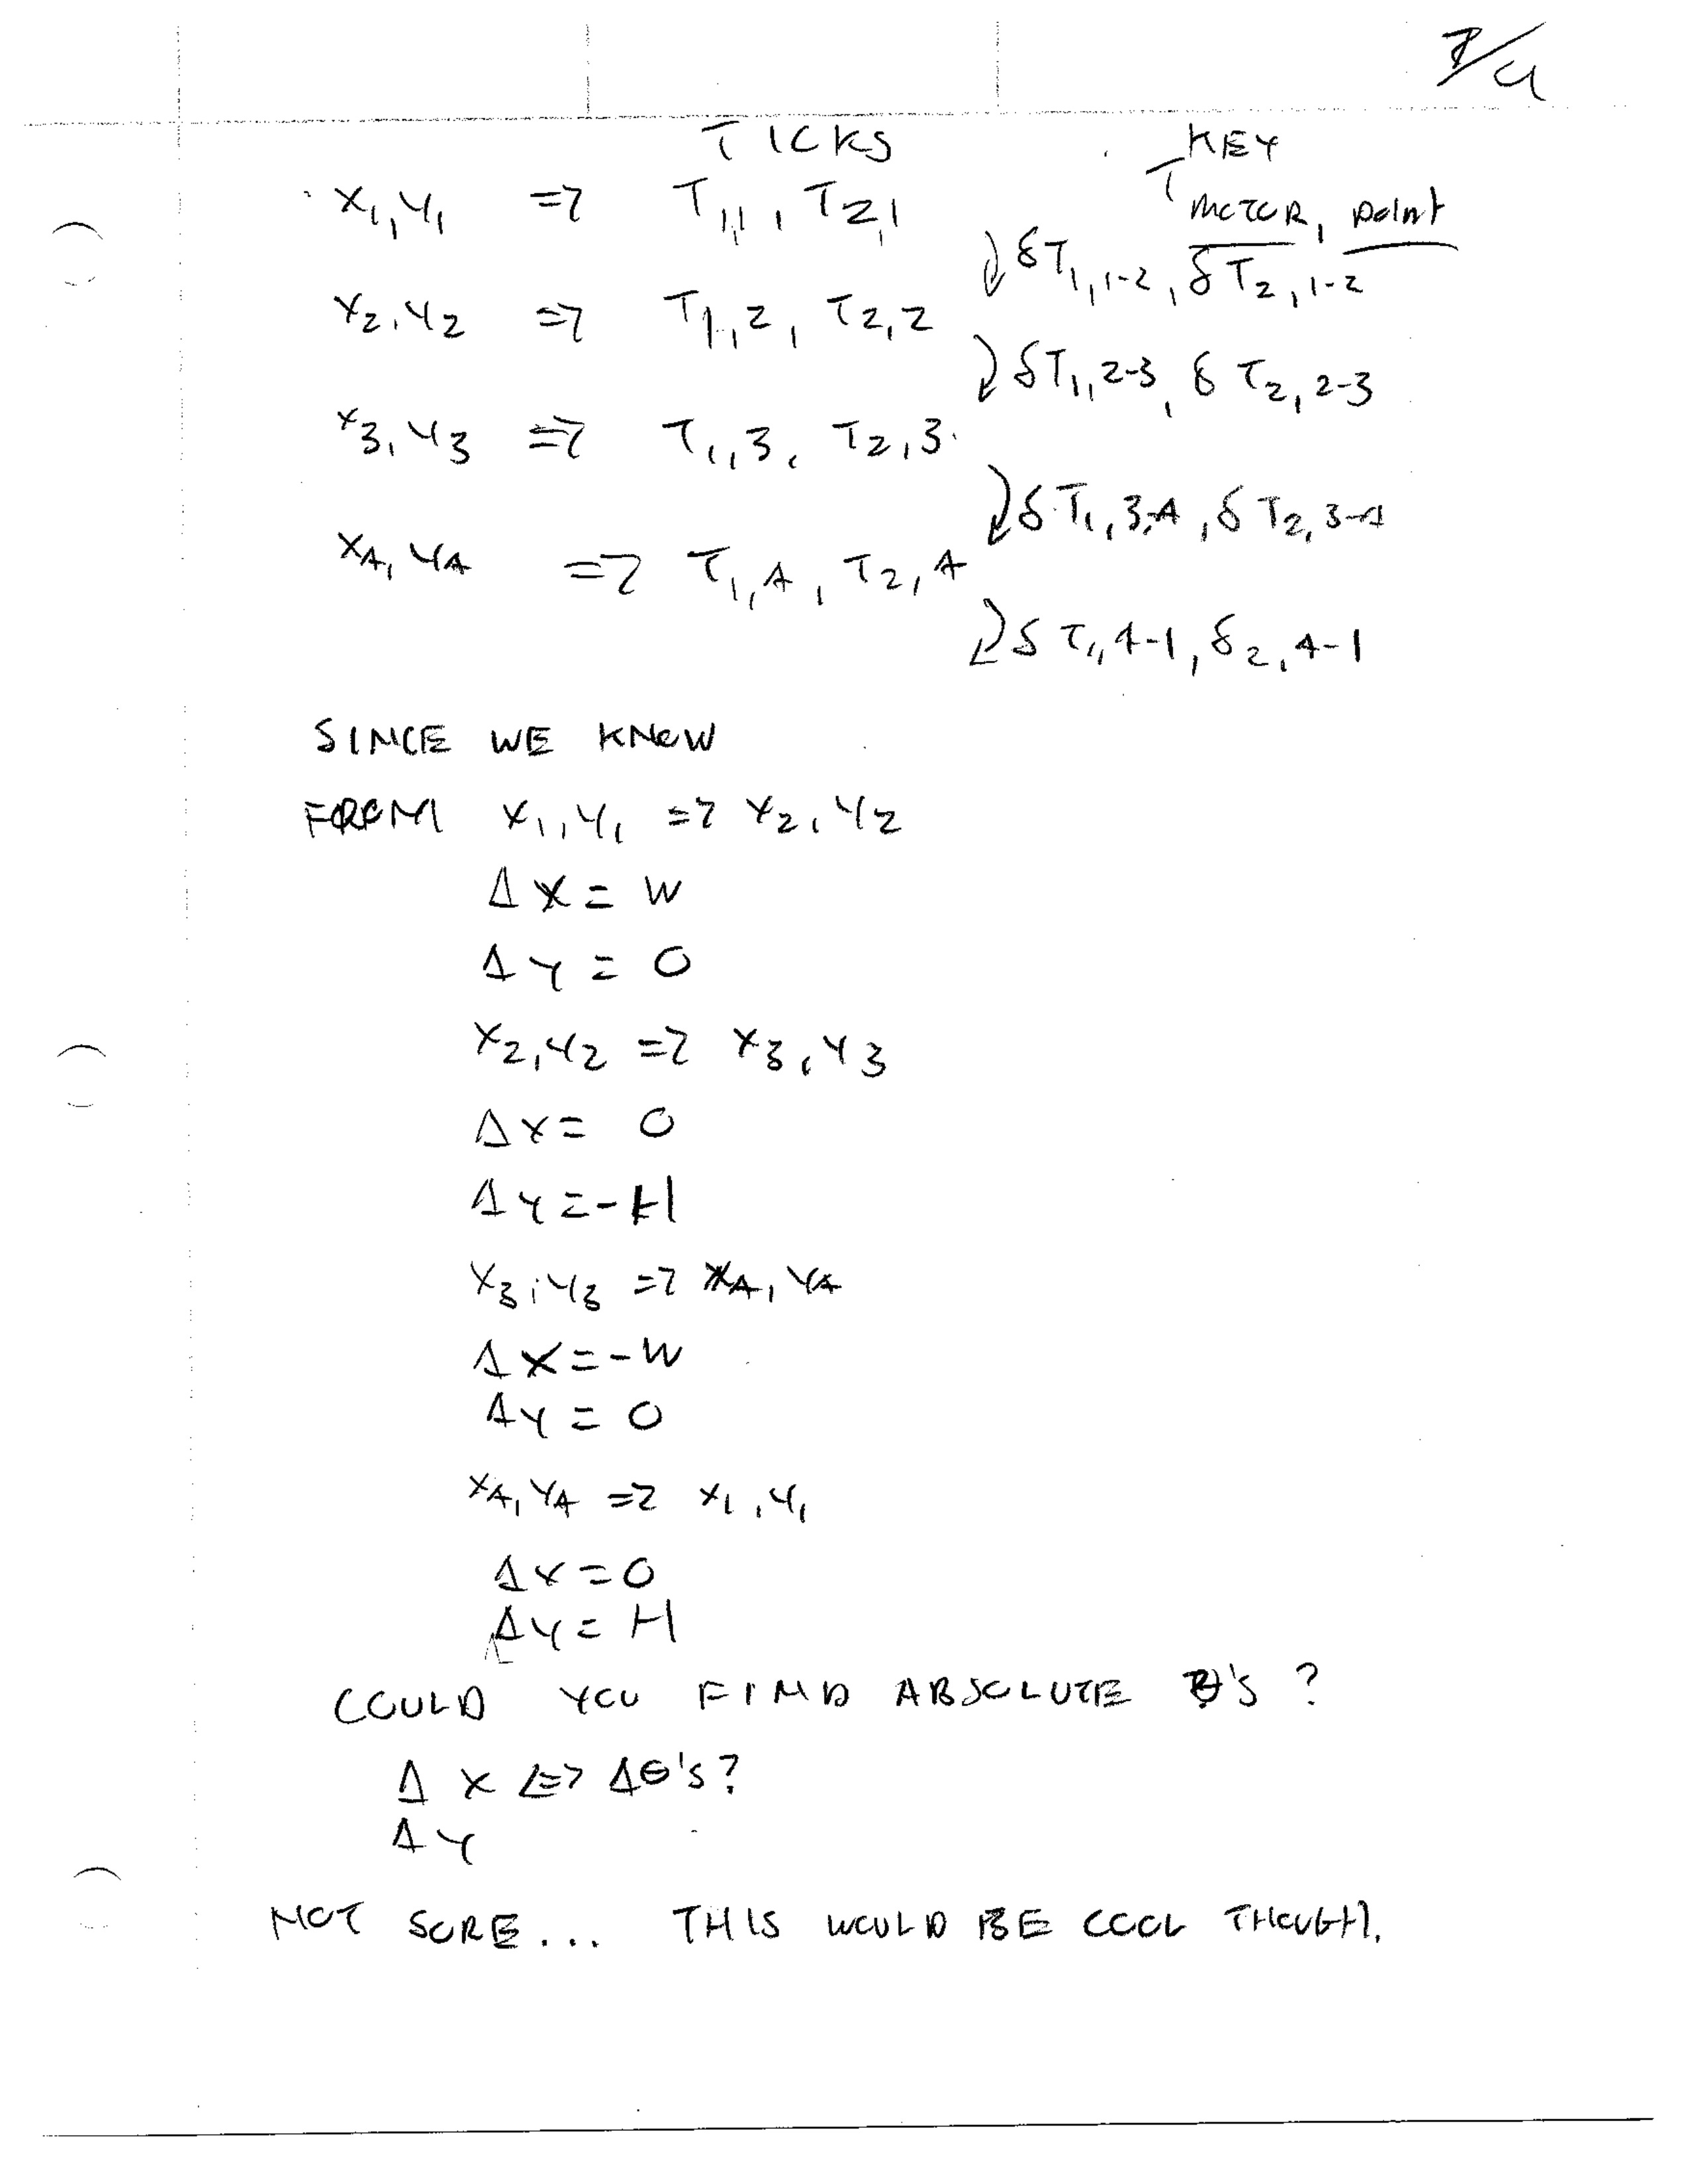 TICKS KEY
x1, y1 => T1,1, T2,1 T MOTOR, point
δT1,1-2, δT2,1-2
x2, y2 => T1,2, T2,2
δT1,2-3, δT2,2-3
x3, y3 => T1,3, T2,3
δT1,3-4, δT2,3-4
x4, y4 => T1,4, T2,4
δT1,4-1, δ2,4-1
SINCE WE KNOW
FROM x1, y1 => x2, y2
Δx = W
Δy = 0
x2, y2 => x3, y3
Δx = 0
Δy = -H
x3, y3 => x4, y4
Δx = -W
Δy = 0
x4, y4 => x1, y1
Δx = 0
Δy = H
COULD YOU FIND ABSOLUTE θ's ?
Δ x <=> Δθ's ?
Δ y
NOT SURE... THIS WOULD BE COOL THOUGH.